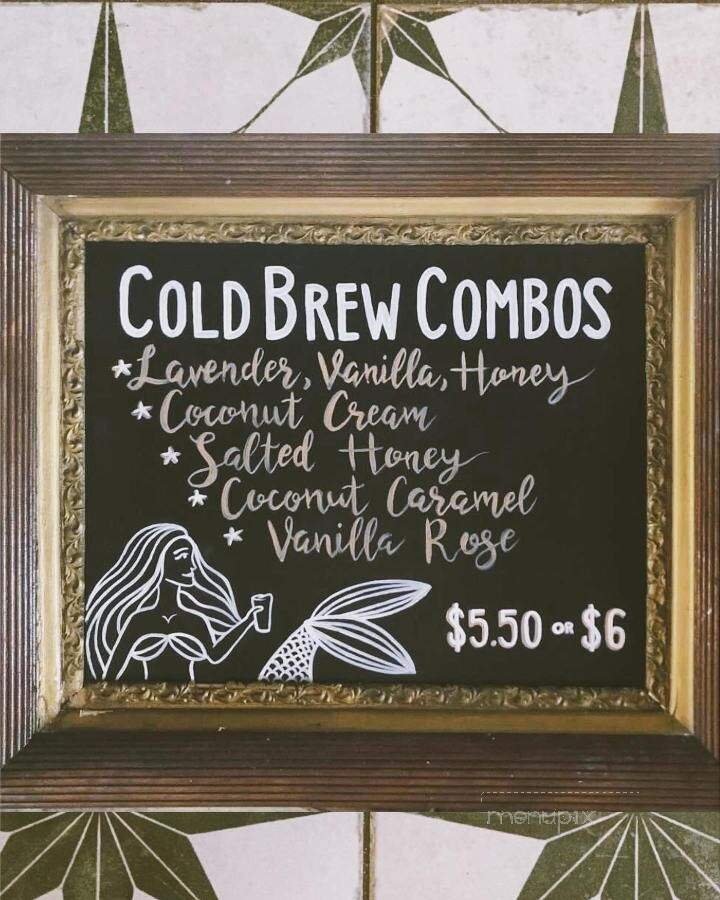 COLD BREW COMBOS
* Lavender, Vanilla, Honey
* Coconut Cream
* Salted Honey
* Coconut Caramel
* Vanilla Rose
$5.50 OR $6
menupix